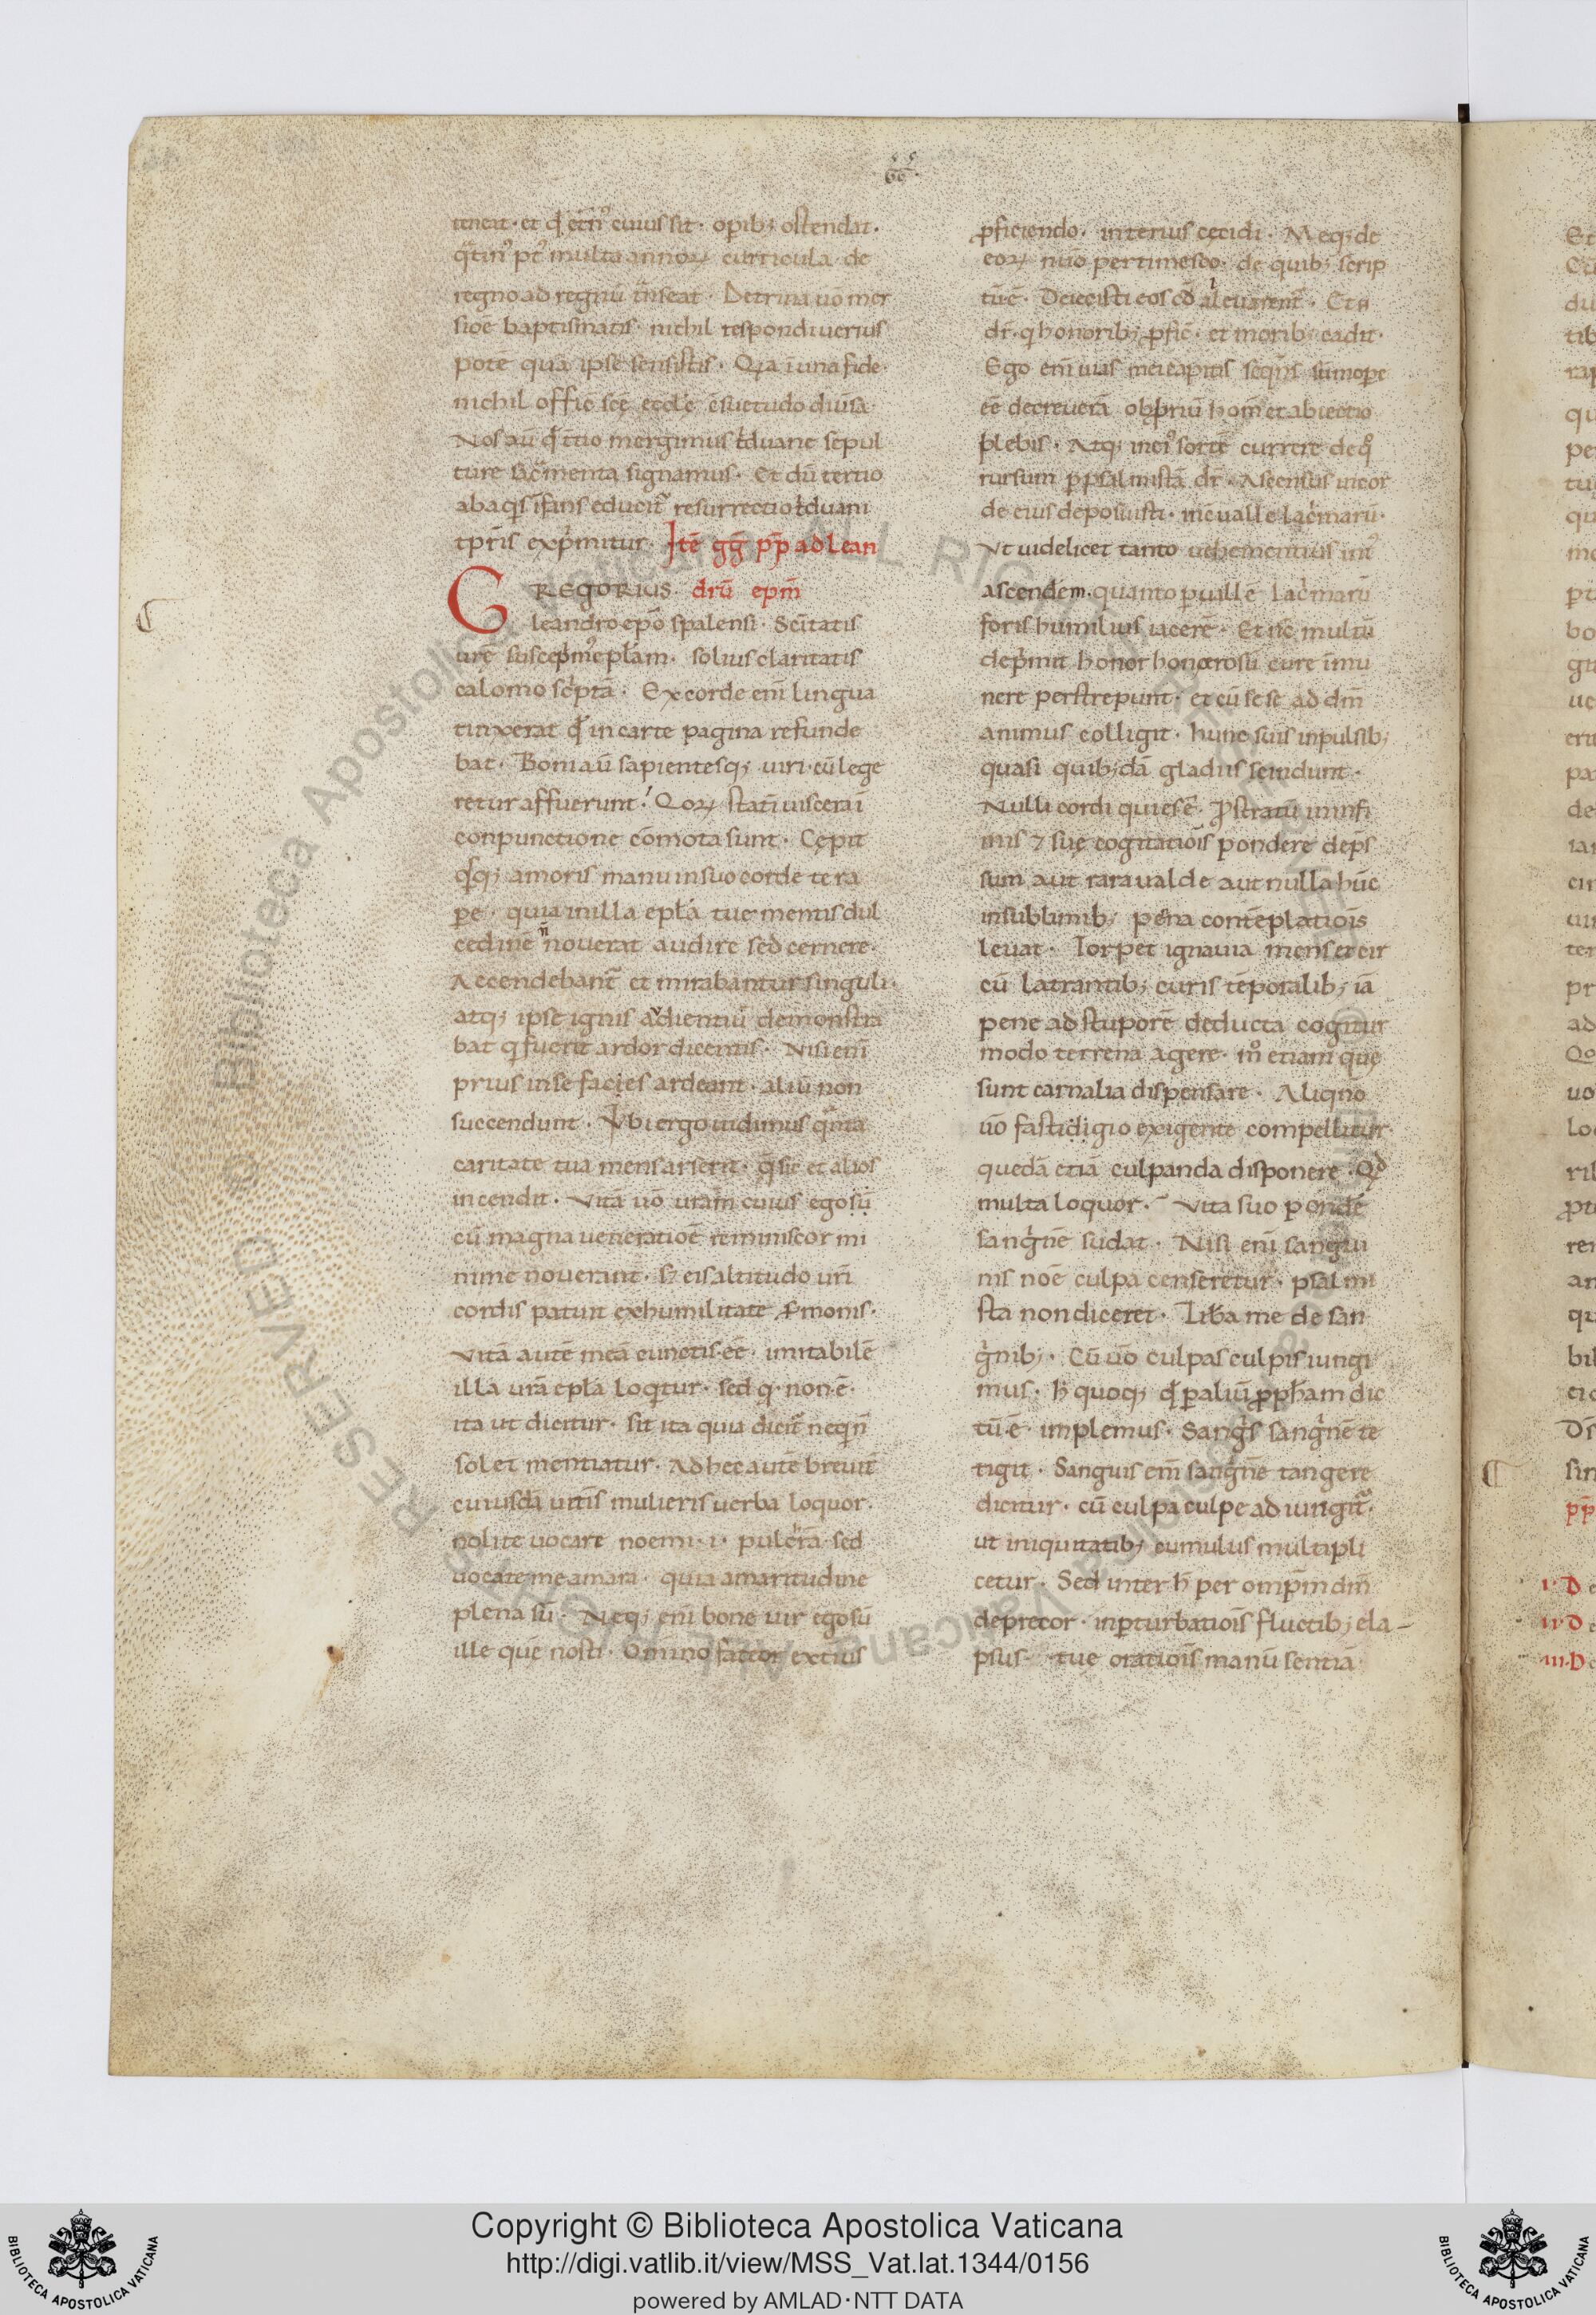 teneat· et qđ etn̄ꝰ cuius sit· opib; ostendat·
q̄tin̄ꝰ pꝰ multa annoꝝ curricula de
regno ad regnū t̄nseat· De trina uō mer
sioē baptismatis· nichil respondi uerius
potē quā ipse sensistis· Q̇a ī una fide·
nichil offic̄ scē eccłe ↄ̄suetudo diūsa·
Nos aū qđ t̄tio mergimus t̊duane sepul
ture sac̄menta signamus· Et dū tertio
ab aq̇s īfans educit᷑ resurrectio t̊duani
tp̄ris exp̊mitur· Itē gḡ pp̄ ad lean
GREGORIUS drū ep̄m
leandro ep̄o spalensi· Sc̄itatis
ūrē suscep̊ mꝰ epłam· solius claritatis
calomo sc̊ptā· Ex corde eni᷑ lingua
tinxerat qđ in carte pagina refunde
bat· Boni aū sapientesq; uiri cū lege
retur affuerunt· Qoꝝ stati᷑ uiscera ī
conpunctione cōmota sunt· Cępit
q̇sq; amoris manu in suo corde te ra
pe· quia in illa epła tue mentis dul
cedinē n̄ nouerat audire sed cernere·
Accendebant᷑ et mirabantur singuli·
atq; ipse ignis audientiū demonstra
bat q̇ fuerit ardor dicentis· Nisi eni᷑
prius in se facies ardeant· aliū non
succendunt· Vbi ergo uidimus q̄nta
caritate tua mens arserit· q̄ sic et alios
incendit· Vitā uō ūram̄ cuius ego sū
cū magna ueneratioē reminiscor mi
nime nouerant· sʒ eis altitudo ūri
cordis patuit ex humilitate sermonis·
Vitā autē meā cunctis·eē· imitabilē
illa ūrā epła loq̇tur· sed q̇ non·ē·
ita ut dicitur· sit ita quia dicit᷑ ne q̇ n̄
solet mentiatur· Ad hec autē breuit᷑
cuiusdā uetis mulieris uerba loquor·
nolite uocare noemi·i· pulc̊rā· sed
uocate me amarā· quia amaritudine
plena sū· Neq; eni᷑ bone uir ego sū
ille quē nosti· Omīno fateor exteius
ꝓficiendo· interius cecidi· Meq; de
eoꝝ nūo pertimesco· de quib; scrip
tū·ē· Deiecisti eos cō alleuarent᷑· Et n̄
dr̄· q̇ honorib; ꝓfic̄· et morib; cadit·
Ego eni᷑ uias mei capitis seq̇ns sūmope
eē decreuerā obp̄riū homi᷑ et abiectio
plebis· Atq; in ei ꝰ sortē currere de qͦ
rursum p psalmistā dr̄· Ascensus in cor
de eius deposuisti· in cōualle lac̊marū·
Vt uidelicet tanto uehementius int̊
ascendem· quanto p uallē lac̊marū
foris humilius iacerē· Et nc̄ multū
dep̊mit honor honorosū cure īnu
nere perstrepunt· et cū se se ad dm̄
animus colligit· hunc suis inpulsib;
quasi quib;dā gladiis scindunt·
Nulli cordi quies·ē· Ꝓstratū in infi
mis ⁊ sue cogitatiōis pondere dep̄s
sum aut rara ualde aut nulla hūc
in sublimib; pēna contēplatiōis
leuat· Torpet ignauia mens et cir
cū latrantib; curis tēporalib; iā
pene ad stuporē deducta cogitur
modo terrena agere· mͦ etiam que
sunt carnalia dispensare· Aliqn̄o
uō fastidigio exigente compellitur
quedā etiā culpanda disponere· Qd
multa loquor· Vita suo pondē
sang̊nē sudat· Nisi eni᷑ sangui
nis noē culpa censeretur· psalmi
sta non diceret· Liba me de san
g̊nib;· Cū uō culpas culpis iungi
mus· h̄ quoq; qđ p aliū ꝓph̄am dic
tū·ē· implemus· Sang̊s sang̊nē te
tigit· Sanguis eni᷑ sang̊nē tangere
dicitur· cū culpa culpe ad iungit᷑·
ut iniquitatib; cumulus multipli
cetur· Sed inter h̄ per omp̄m dm̄
deprecor· in pturbatiōis fluctib; ela-
psus· tue oratiōis manū sentiā·
Copyright © Biblioteca Apostolica Vaticana
http://digi.vatlib.it/view/MSS_Vat.lat.1344/0156
powered by AMLAD·NTT DATA